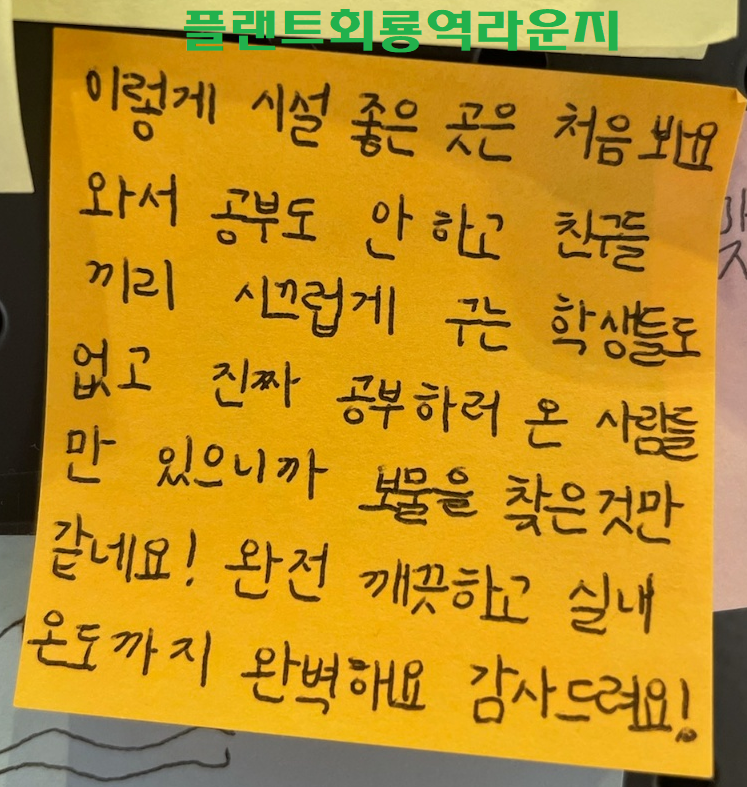 플랜트회룡역라운지
이렇게 시설 좋은 곳은 처음 봐요
와서 공부도 안 하고 친구들
끼리 시끄럽게 구는 학생들도
없고 진짜 공부하러 온 사람들
만 있으니까 보물을 찾은것만
같네요! 완전 깨끗하고 실내
온도까지 완벽해요 감사드려요!